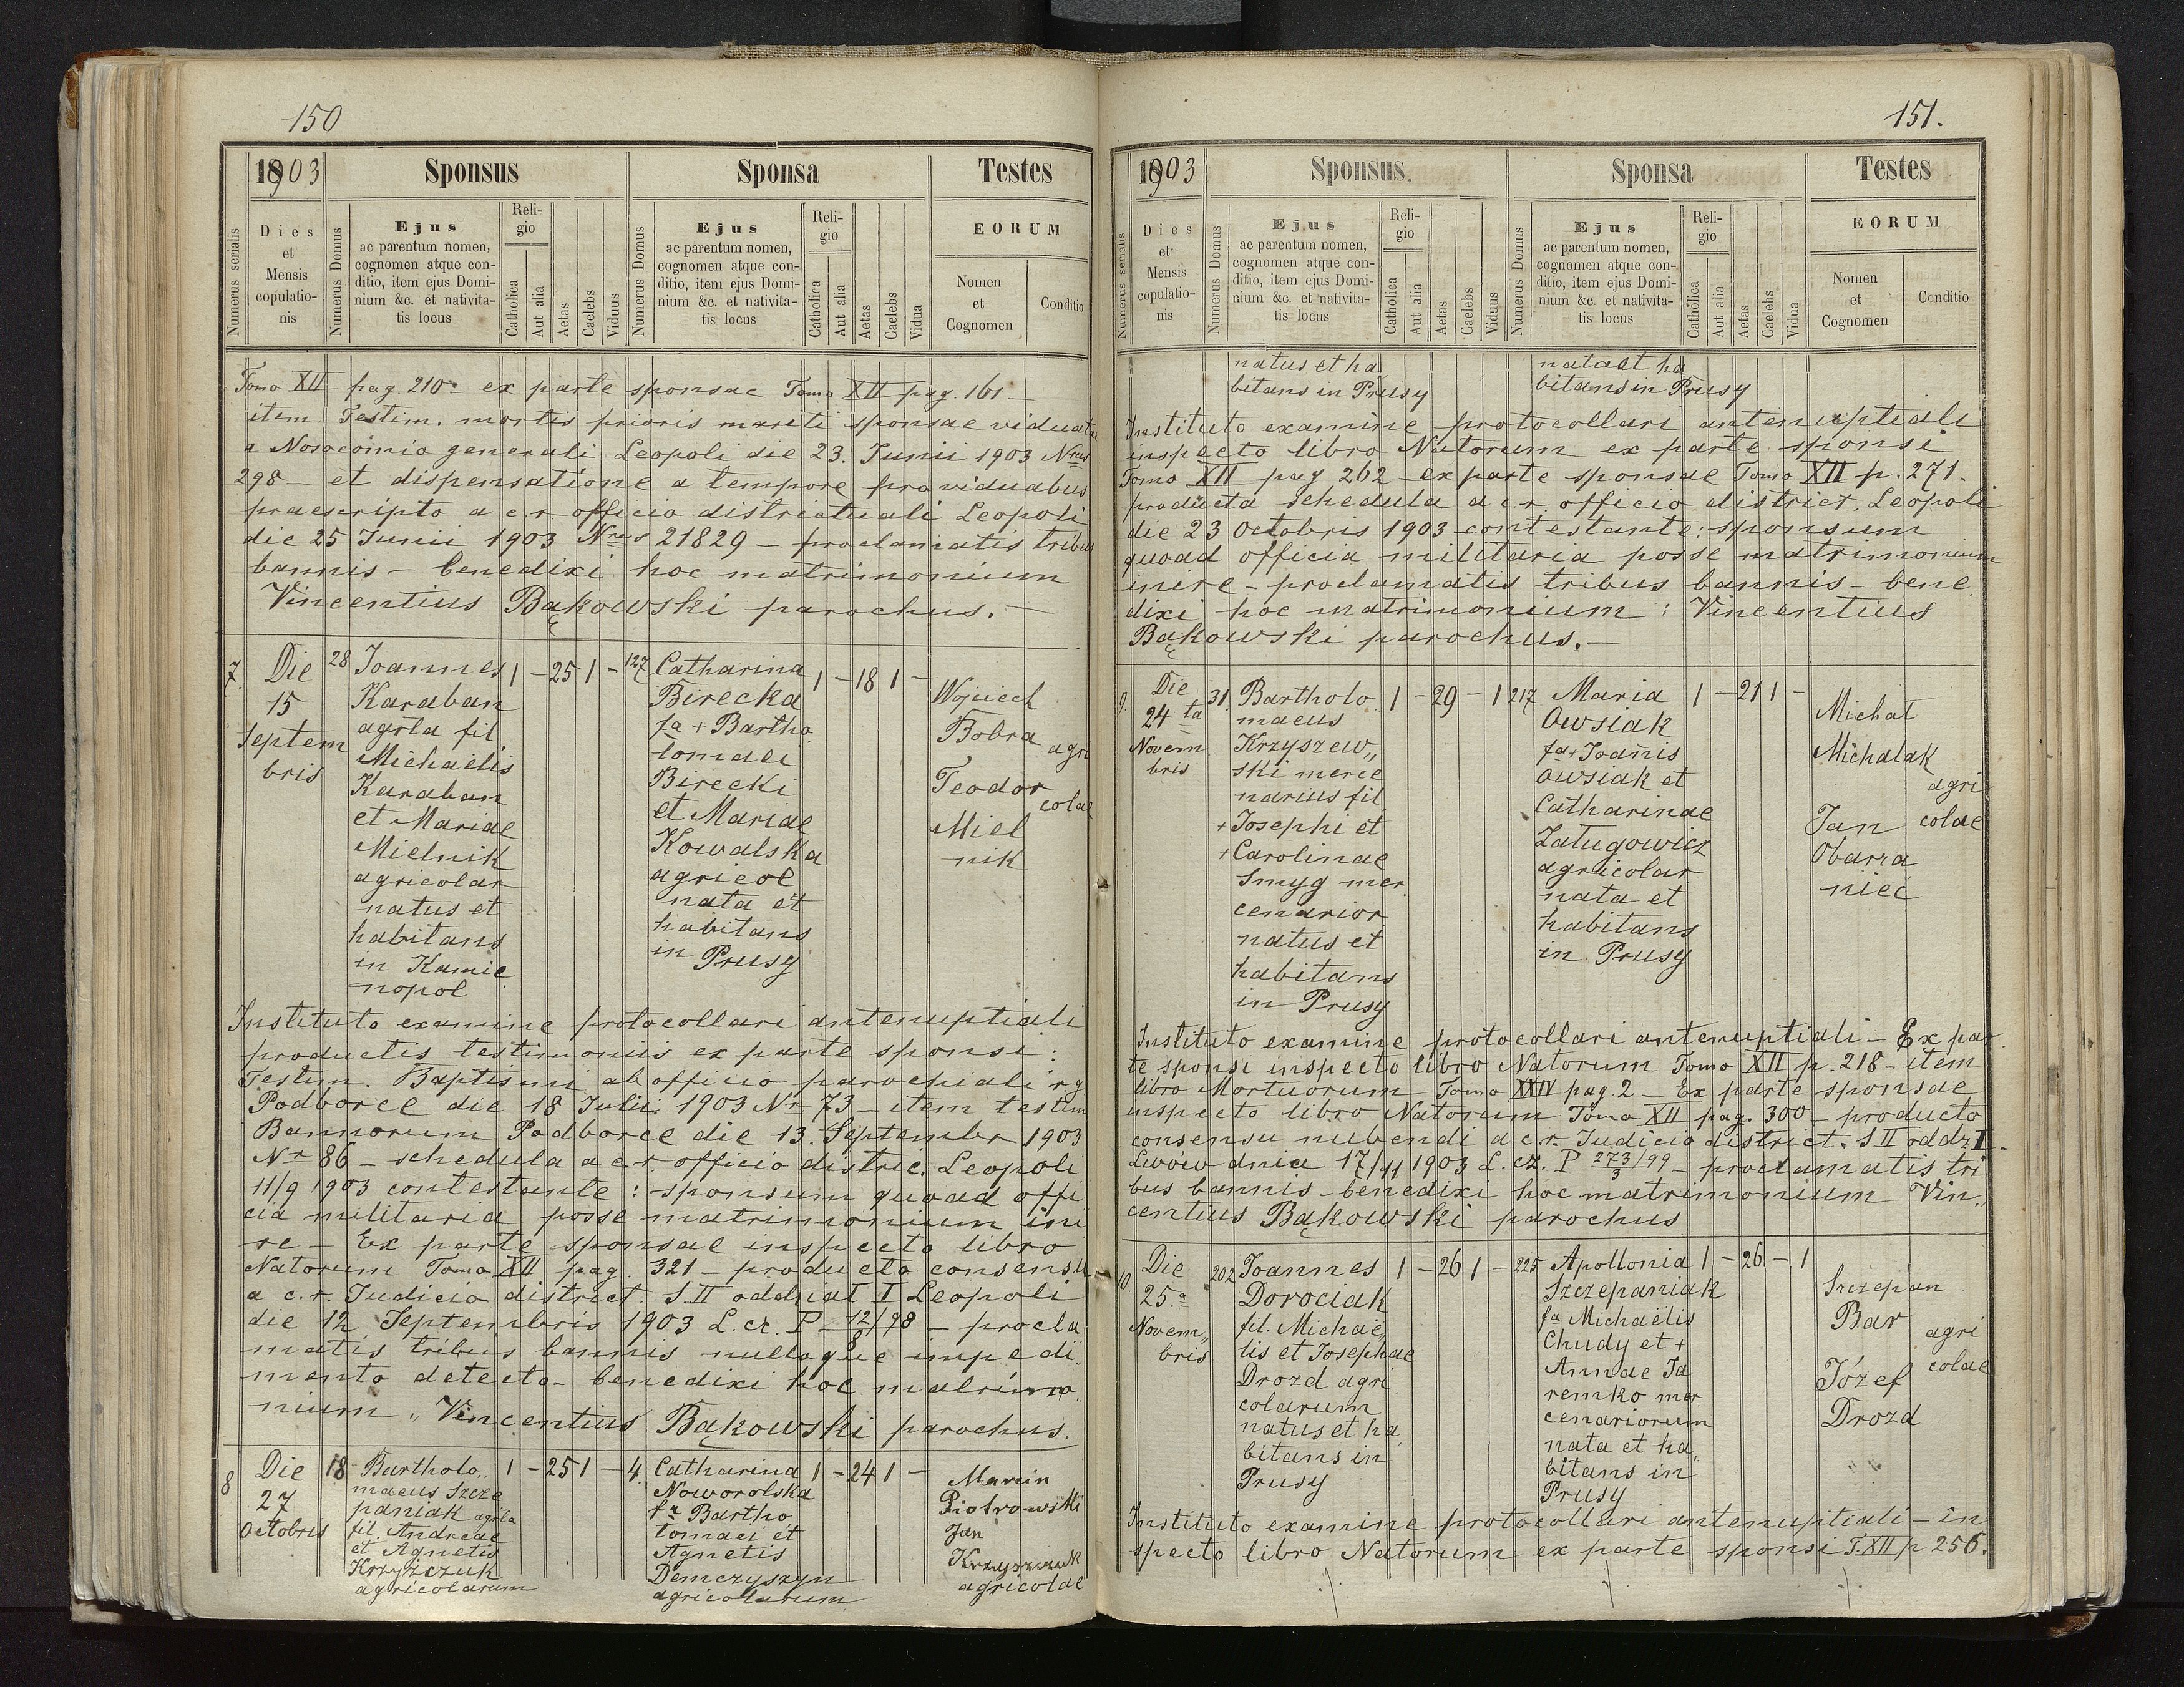 150
1903
Sponsus
Sponsa
Testes
Numerus serialis
Dies
et
Mensis
copulatio-
nis
Numerus Domus
Ejus
ac parentum nomen,
cognomen atque con-
ditio, item ejus Domi-
nium &c. et nativita-
tis locus
Reli-
gio
Catholica
Aut alia
Aetas
Caelebs
Viduus
Numerus Domus
Ejus
ac parentum nomen,
cognomen atque con-
ditio, item ejus Domi-
nium &c. et nativita-
tis locus
Reli-
gio
Catholica
Aut alia
Aetas
Caelebs
Vidua
EORUM
Nomen
et
Cognomen
Conditio
Tomo XII pag. 210 - ex parte sponsae Tomo XII pag. 161 -
item Testim. mortis prioris mariti sponsae viduatae
a Nosocomio generali Leopoli die 23. Junii 1903 Nrus
298 - et dispensatione a tempore pro viduabus
praescripto a c r officio districtuali Leopoli
die 25 Junii 1903 Nrus 21829 - proclamatis tribus
bannis - benedixi hoc matrimonium
Vincentius Bąkowski parochus. -
7.
Die
15
Septem
bris
28
Joannes
Karaban
agrla fil
Michaelis
Karaban
et Mariae
Mielnik
agricolar
natus et
habitans
in Kamie
nopol
1 - 25 1 -
127
Catharina
Birecka
fa + Bartho
lomaei
Birecki
et Mariae
Kowalska
agricol
nata et
habitans
in Prusy
1 - 18 1 -
Wojciech
Bobra
Teodor
Miel
nik
agri
colae
Instituto examine protocollari antenuptiali
productis testimoniis ex parte sponsi:
Testim. Baptismi ab officio parochiali r. g
Podborce die 18 Julii 1903 Nr 73 - item testim
Bannorum Podborce die 13. Septembr 1903
Nr 86 - schedula a c. r. officio distric. Leopoli
11/9 1903 contestante: sponsum quoad offi
cia militaria posse matrimonium ini
re - Ex parte sponsae inspecto libro
Natorum Tomo XII pag. 321 - producto consensu
a c. r. Judicio district. S II oddział I Leopoli
die 12 Septembris 1903 L. cz. P 12/98 8 - procla
matis tribus bannis nulloque impedi
mento detecto - benedixi hoc matrimo
nium „ Vincentius Bąkowski parochus.
8
Die
27
Octobris
18
Bartholo„
maeus Szcze
paniak agrla
fil. Andreae
et Agnetis
Krzyszczuk
agricolarum
1 - 25 1 -
4
Catharina
Noworolska
fa Bartho
lomaei et
Agnetis
Demczyszyn
agricolarum
1 - 24 1 -
Marcin
Piotrowski
Jan
Krzyszczuk
agricolae
151.
1903
Sponsus
Sponsa
Testes
Numerus serialis
Dies
et
Mensis
copulatio-
nis
Numerus Domus
Ejus
ac parentum nomen,
cognomen atque con-
ditio, item ejus Domi-
nium &c. et nativita-
tis locus
Reli-
gio
Catholica
Aut alia
Aetas
Caelebs
Viduus
Numerus Domus
Ejus
ac parentum nomen,
cognomen atque con-
ditio, item ejus Domi-
nium &c. et nativita-
tis locus
Reli-
gio
Catholica
Aut alia
Aetas
Caelebs
Vidua
EORUM
Nomen
et
Cognomen
Conditio
natus et ha
bitans in Prusy
nata et ha
bitans in Prusy
Instituto examine protocollari antenuptiali
inspecto libro Natorum ex parte sponsi
Tomo XII pag 262 - ex parte sponsae Tomo XII p. 271.
producta schedula a c. r. officio district. Leopoli
die 23 Octobris 1903 contestante: sponsum
quoad officia militaria posse matrimonium
inire - proclamatis tribus bannis - bene
dixi hoc matrimonium: Vincentius
Bąkowski parochus. -
9.
Die
24 ta
Novem
bris
31
Bartholo
maeus
Krzyszew„
ski merce
narius fil
+ Josephi et
+ Carolinae
Smyg mer
cenarior
natus et
habitans
in Prusy
1 - 29 - 1
217
Maria
Owsiak
fa + Joañis
Owsiak et
Catharinae
Załugowicz
agricolar
nata et
habitans
in Prusy
1 - 21 1 -
Michał
Michalak
Jan
Obarza
niec
agri
colae
Instituto examine protocollari antenuptiali - Ex par
te sponsi inspecto libro Natorum Tomo XII p. 218 - item
libro Mortuorum Tomo XXIV pag. 2 - Ex parte sponsae
inspecto libro Natorum Tomo XII pag. 300 - producto
consensu nubendi a c. r. Judicio district. S II oddz I -
Lwów dnia 17/11 1903 L. cz. P 273/99 3 - proclamatis tri
bus bannis - benedixi hoc matrimonium Vin„
centius Bąkowski parochus
10
Die
25.a
Novem„
bris
202
Joannes
Dorociak
fil. Michaë„
lis et Josephae
Drozd agri
colarum
natus et ha
bitans in
Prusy
1 - 26 1 -
225
Apollonia
Szczepaniak
fa Michaëlis
Chudy et +
Annae Ja
remko mer
cenariorum
nata et ha
bitans in
Prusy
1 - 26 - 1
Szczepan
Bar
Józef
Drozd
agri
colae
Instituto examine protocollari antenuptiali - in
specto libro Natorum ex parte sponsi T. XII p 256.